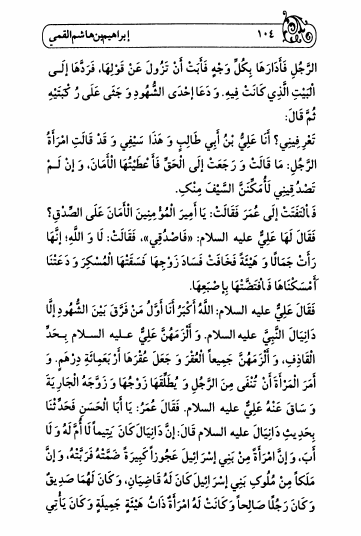 ١٠٤ إبراهيم بن هاشم القمي
الرَّجُلِ فَأَدَارَهَا بِكُلِّ وَجْهٍ فَأَبَتْ أَنْ تَزُولَ عَنْ قَوْلِهَا، فَرَدَّهَا إِلَى
الْبَيْتِ الَّذِي كَانَتْ فِيهِ. وَدَعَا إِحْدَى الشُّهُودِ وَجَثَى عَلَى رُكْبَتَيْهِ
ثُمَّ قَالَ:
تَعْرِفِينِي؟ أَنَا عَلِيُّ بْنُ أَبِي طَالِبٍ وَ هَذَا سَيْفِي وَ قَدْ قَالَتِ امْرَأَةُ
الرَّجُلِ: مَا قَالَتْ وَ رَجَعَتْ إِلَى الْحَقِّ فَأَعْطَيْتُهَا الْأَمَانَ، وَ إِنْ لَمْ
تَصْدُقِينِي لَأُمَكِّنَنَّ السَّيْفَ مِنْكِ.
فَالْتَفَتَتْ إِلَى عُمَرَ فَقَالَتْ: يَا أَمِيرَ الْمُؤْمِنِينَ الْأَمَانَ عَلَى الصِّدْقِ؟
فَقَالَ لَهَا عَلِيٌّ عليه السلام: «فَاصْدُقِي»، فَقَالَتْ: لَا وَ اللَّهِ؛ إِنَّهَا
رَأَتْ جَمَالًا وَ هَيْئَةً فَخَافَتْ فَسَادَ زَوْجِهَا فَسَقَتْهَا الْمُسْكِرَ وَ دَعَتْنَا
أَمْسَكْنَاهَا فَافْتَضَّتْهَا بِإِصْبَعِهَا.
فَقَالَ عَلِيٌّ عليه السلام: اللَّهُ أَكْبَرُ أَنَا أَوَّلُ مَنْ فَرَّقَ بَيْنَ الشُّهُودِ إِلَّا
دَانِيَالَ النَّبِيَّ عليه السلام. وَ أَلْزَمَهُنَّ عَلِيٌّ عليه السلام بِحَدِّ
الْقَاذِفِ، وَ أَلْزَمَهُنَّ جَمِيعاً الْعُقْرَ وَ جَعَلَ عُقْرَهَا أَرْبَعَمِائَةِ دِرْهَمٍ. وَ
أَمَرَ الْمَرْأَةَ أَنْ تُنْفَى مِنَ الرَّجُلِ وَ يُطَلِّقَهَا زَوْجُهَا وَ زَوَّجَهُ الْجَارِيَةَ
وَ سَاقَ عَنْهُ عَلِيٌّ عليه السلام. فَقَالَ عُمَرُ: يَا أَبَا الْحَسَنِ فَحَدِّثْنَا
بِحَدِيثِ دَانِيَالَ عليه السلام قَالَ: إِنَّ دَانِيَالَ كَانَ يَتِيماً لَا أُمَّ لَهُ وَ لَا
أَبَ، وَ إِنَّ امْرَأَةً مِنْ بَنِي إِسْرَائِيلَ عَجُوزاً كَبِيرَةً ضَمَّتْهُ فَرَبَّتْهُ، وَ إِنَّ
مَلَكاً مِنْ مُلُوكِ بَنِي إِسْرَائِيلَ كَانَ لَهُ قَاضِيَانِ، وَ كَانَ لَهُمَا صَدِيقٌ
وَ كَانَ رَجُلًا صَالِحاً وَ كَانَتْ لَهُ امْرَأَةٌ ذَاتُ هَيْئَةٍ جَمِيلَةٍ وَ كَانَ يَأْتِي